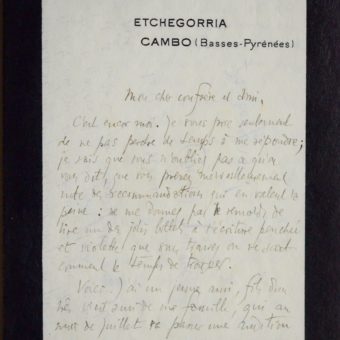 ETCHEGORRIA
CAMBO (Basses-Pyrénées)
Mon cher confrère et ami,
C'est encor moi. Je vous prie seulement
de ne pas perdre de temps à me répondre ;
je sais que vous n'oubliez pas ce qu'on
vous dit, que vous prenez merveilleusement
note de recommandations qui en valent la
peine : ne me donnez pas le remords de
lire un des jolis billets à l'écriture penchée
et violette que vous trouvez on ne sait
comment le temps de tracer.
Voici. J'ai un jeune ami, fils d'un
très ami de ma famille, qui au
mois de juillet passer une